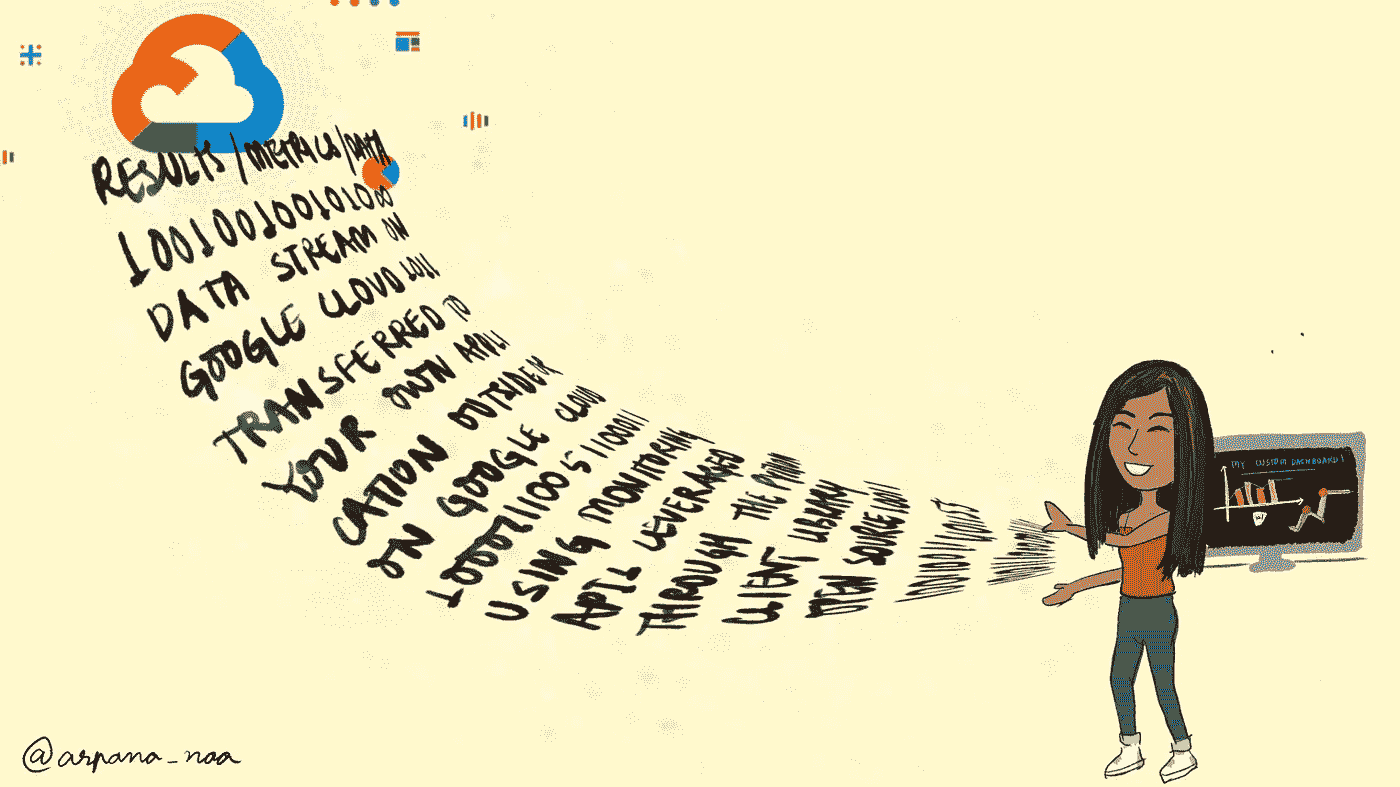 RESULTS/METRICS/DATA
1001001001010
DATA STREAM ON
GOOGLE CLOUD 1011
TRANSFERRED TO
YOUR OWN APPLI
CATION OUTSIDE
ON GOOGLE CLOUD
USING MONITORING
APIs LEVERAGED
THROUGH THE
CLIENT LIBRARY
OPEN SOURCE
MY CUSTOM DASHBOARD!
@arpana_naa